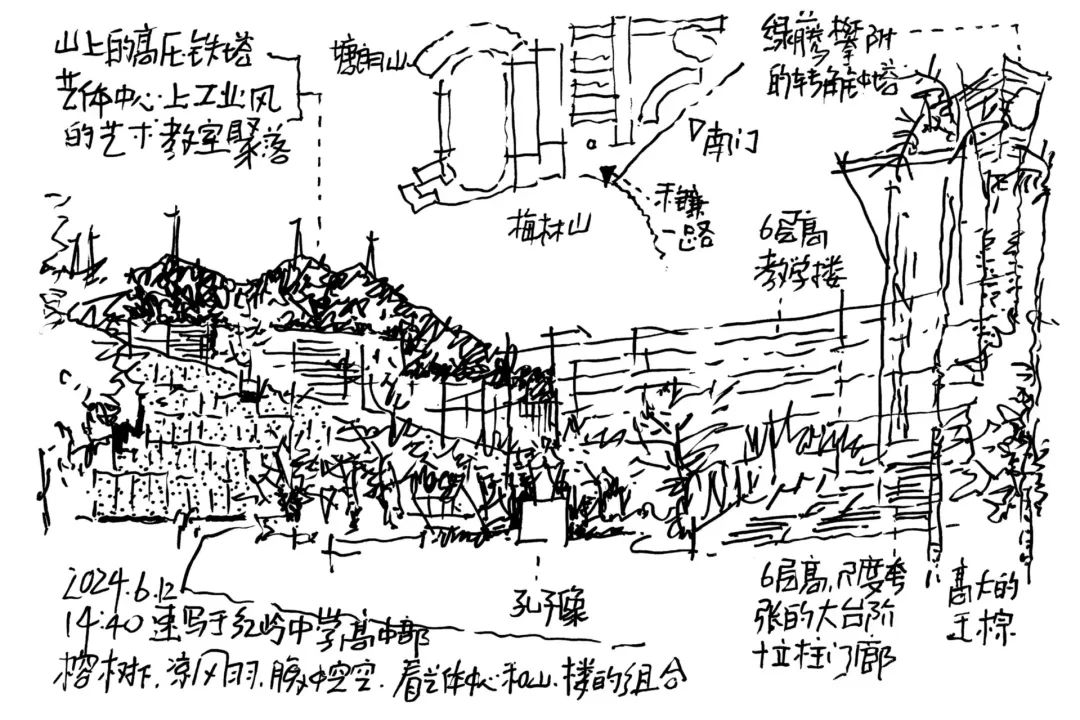 山上的高压铁塔
艺体中心上工业风
的艺术教室聚落
塘朗山
梅林山
南门
禾镰
一路
绿藤攀附
的转角钟塔
6层高
教学楼
2024.6.12
14:40 速写于红岭中学高中部
榕树下,凉风雨,腹中空空.看艺体中心和山、楼的组合
孔子像
6层高,尺度夸
张的大台阶
+立柱门廊
高大的
王棕